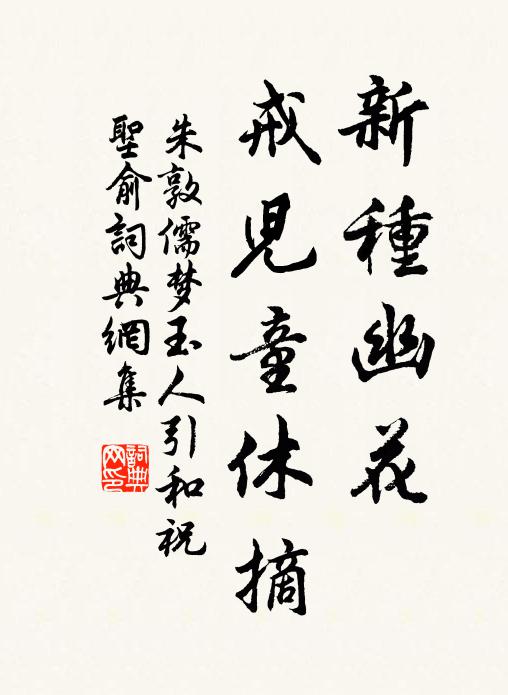 新種幽花
戒児童休摘
朱敦儒梦玉人引和祝
聖俞詞典網集
詞典
网印